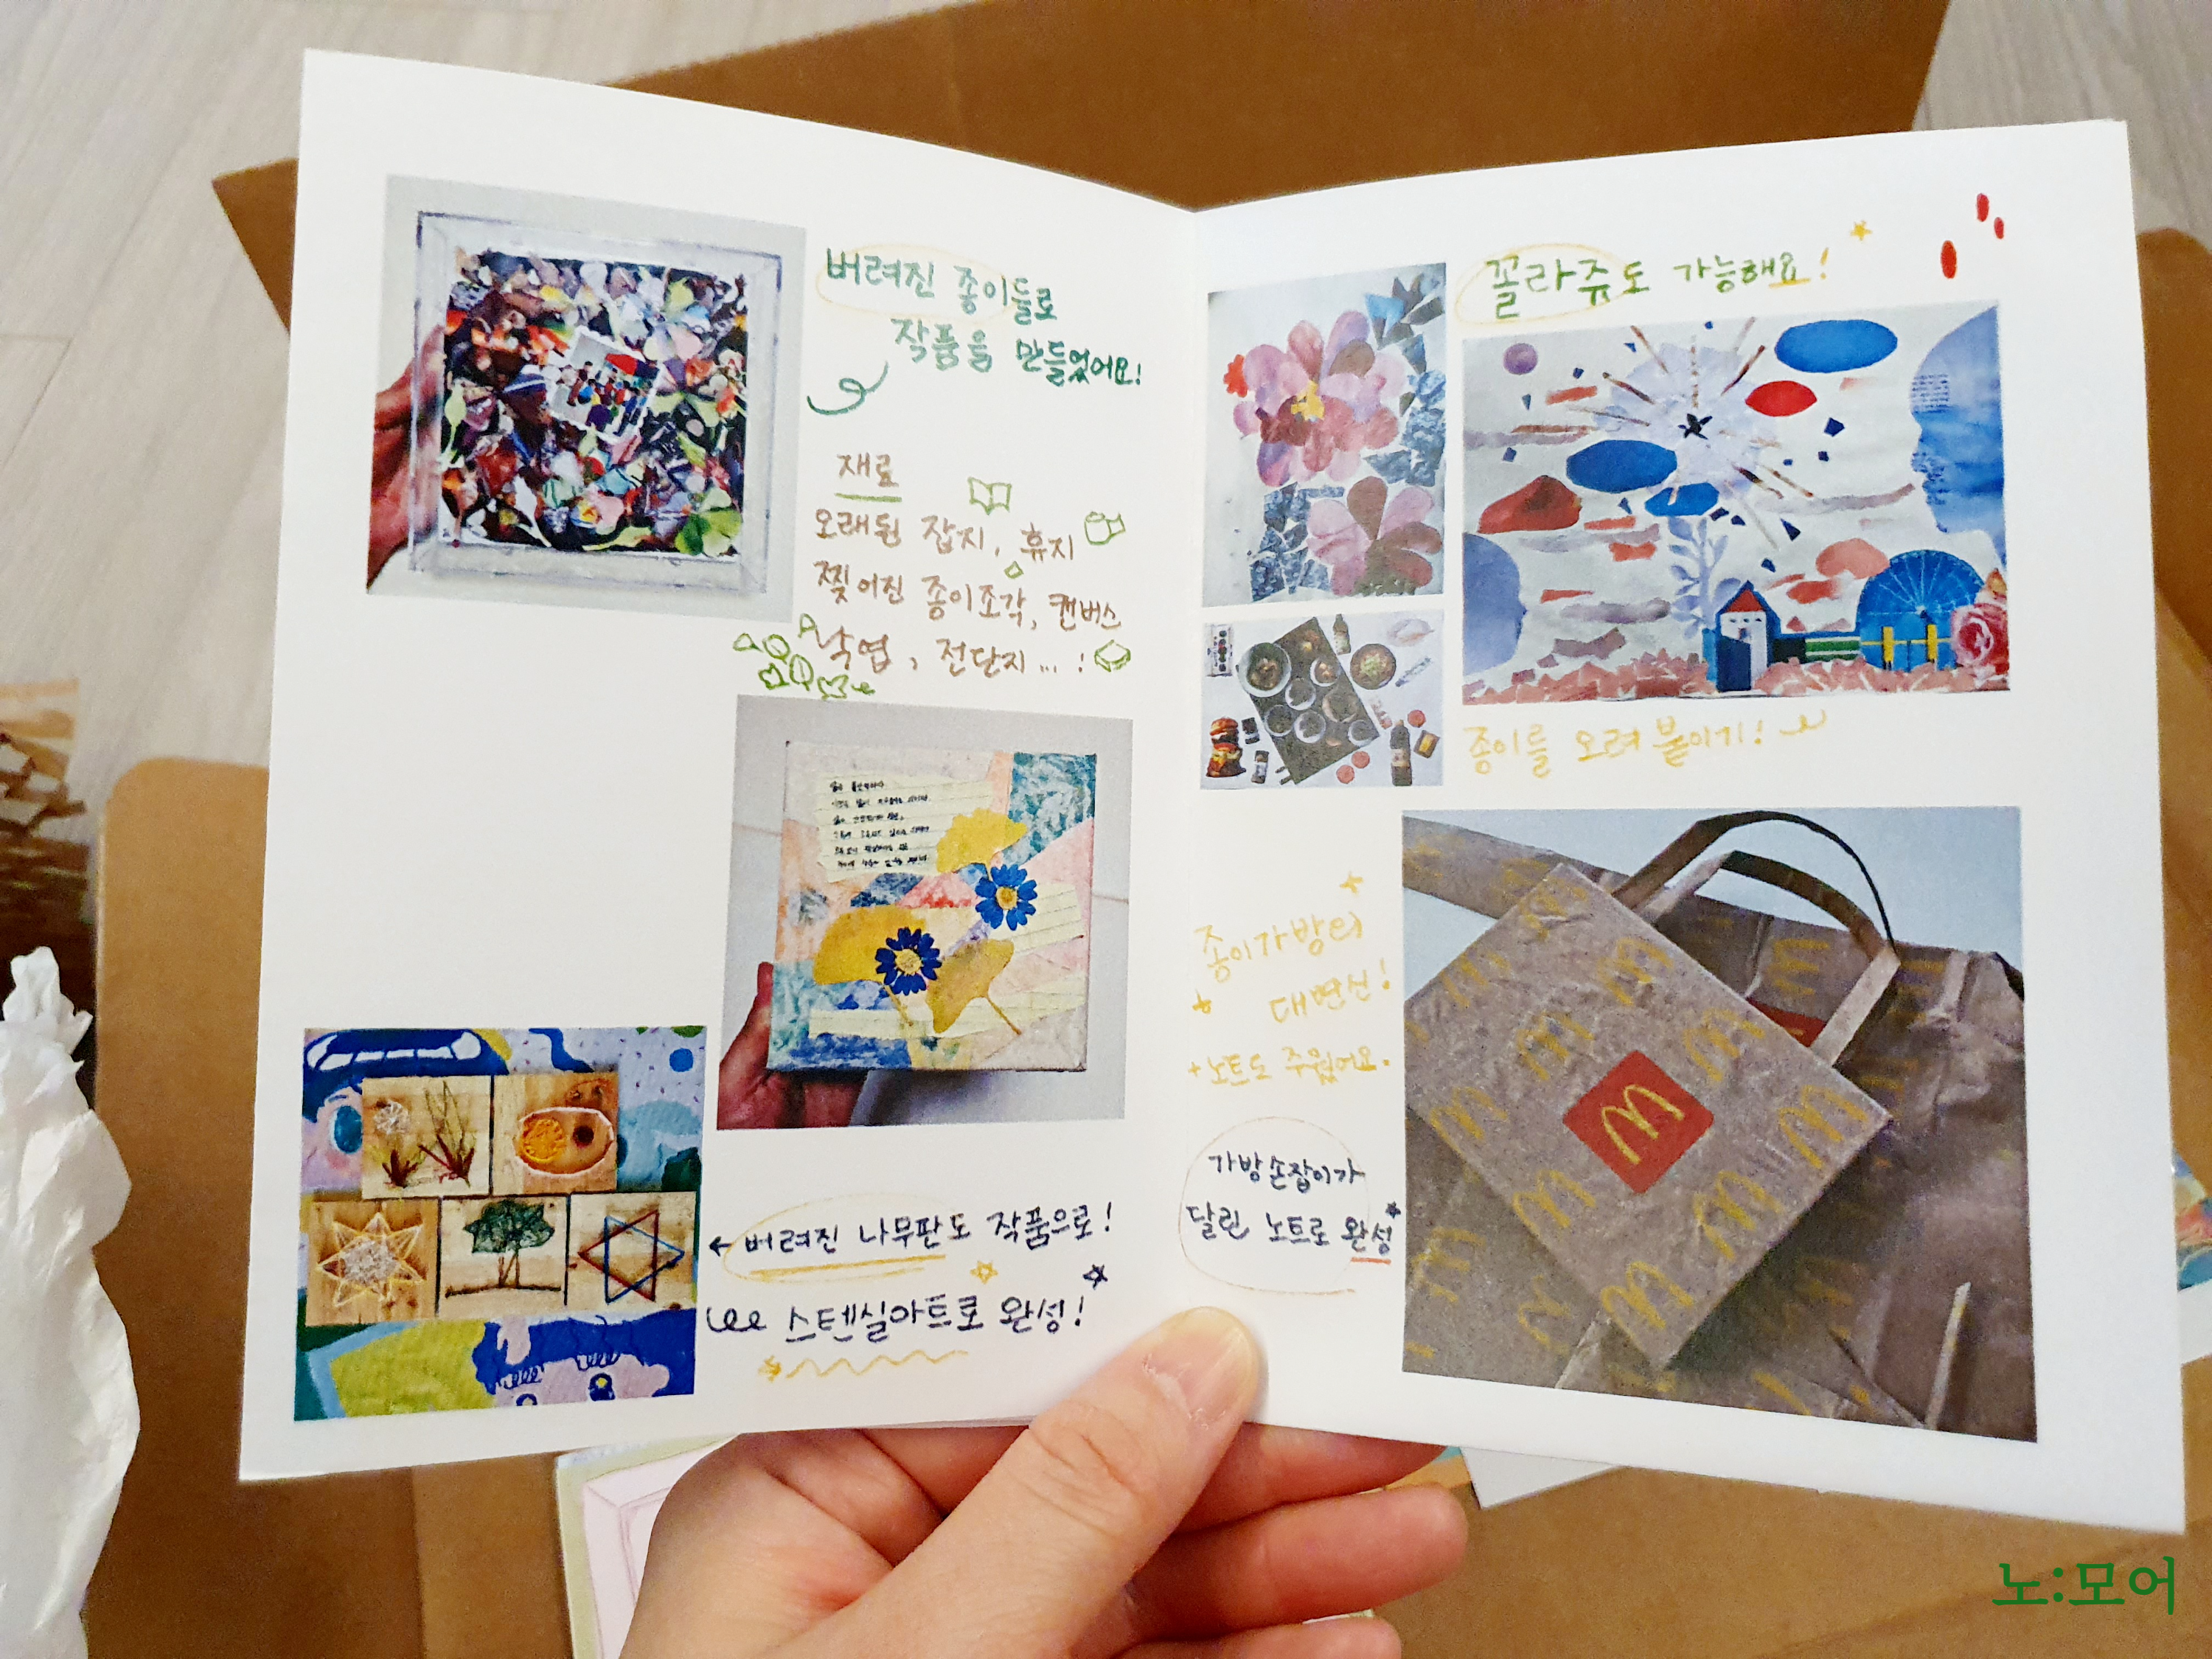 버려진 종이들로
작품을 만들었어요!
재료
오래된 잡지, 휴지
찢어진 종이조각, 캔버스
낙엽, 전단지... !
← 버려진 나무판도 작품으로!
스텐실아트로 완성!
꼴라쥬도 가능해요!
종이를 오려 붙이기!
종이가방의
대변신!
+노트도 주웠어요.
가방손잡이가
달린 노트로 완성
노:모어